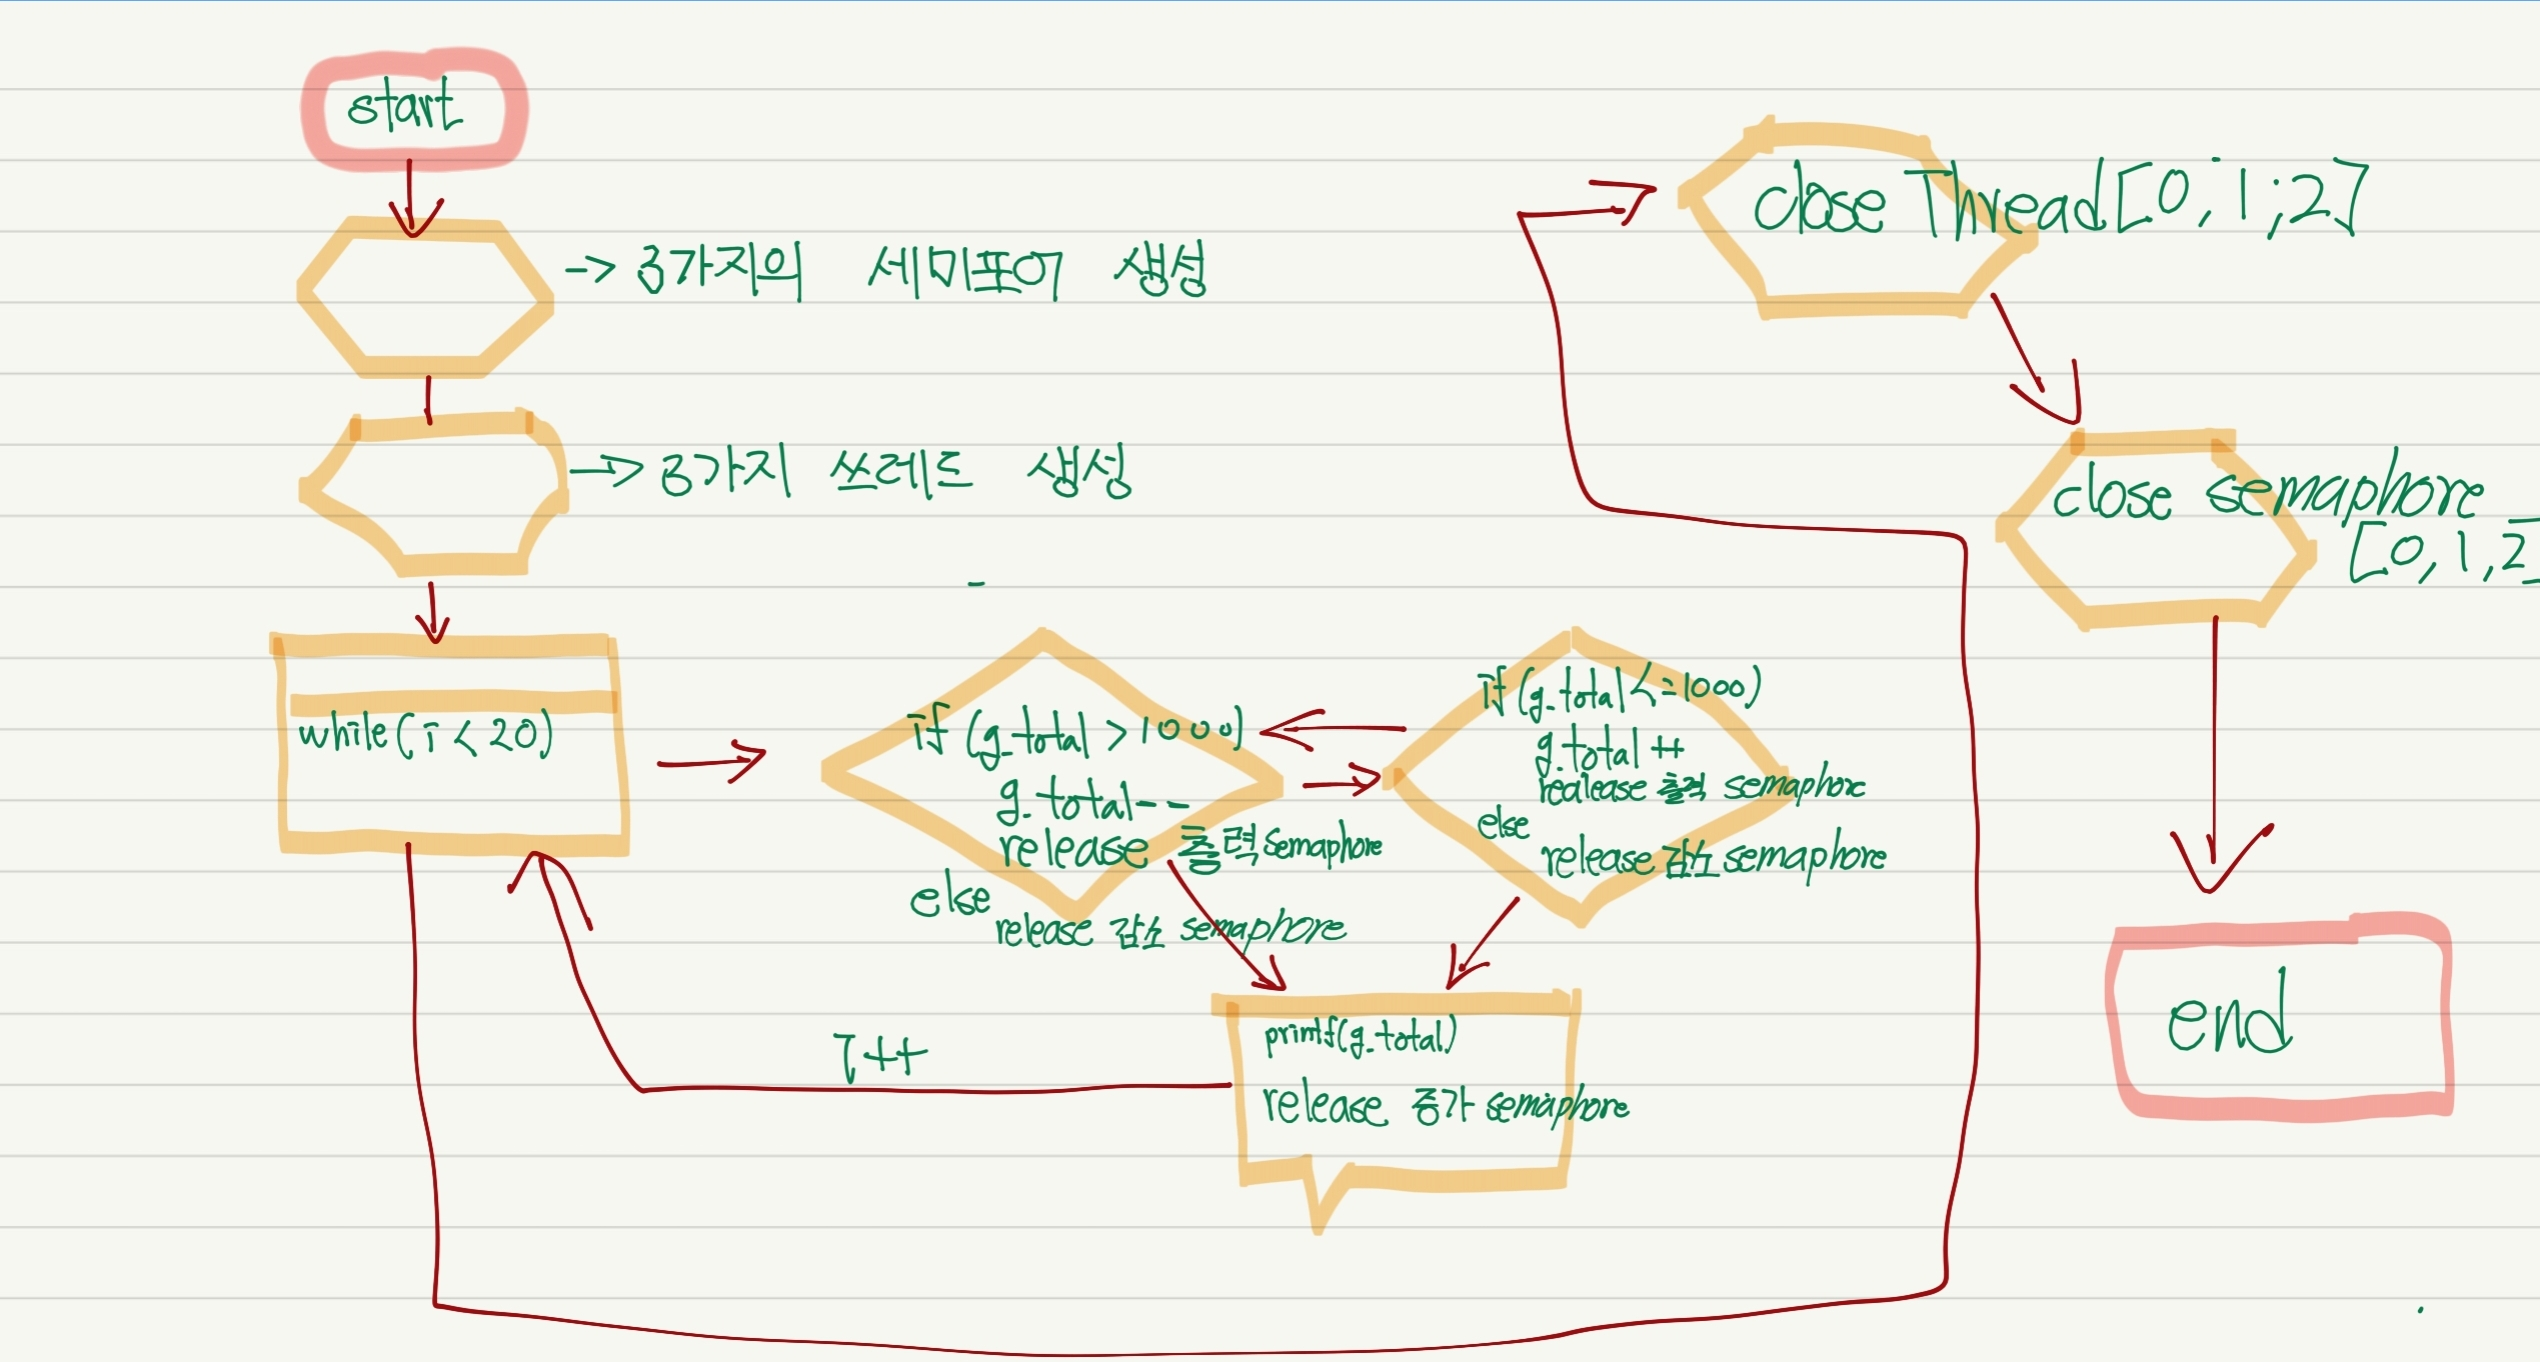 start
-> 3가지의 세미포어 생성
-> 3가지 쓰레드 생성
while(i < 20)
if (g_total > 1000)
g_total--
release 출력 semaphore
else
release 감소 semaphore
if (g_total <= 1000)
g_total ++
realease 출력 semaphore
else
release 감소 semaphore
printf(g_total)
release 증가 semaphore
i++
close Thread[0, 1, 2]
close semaphore
[0, 1, 2]
end